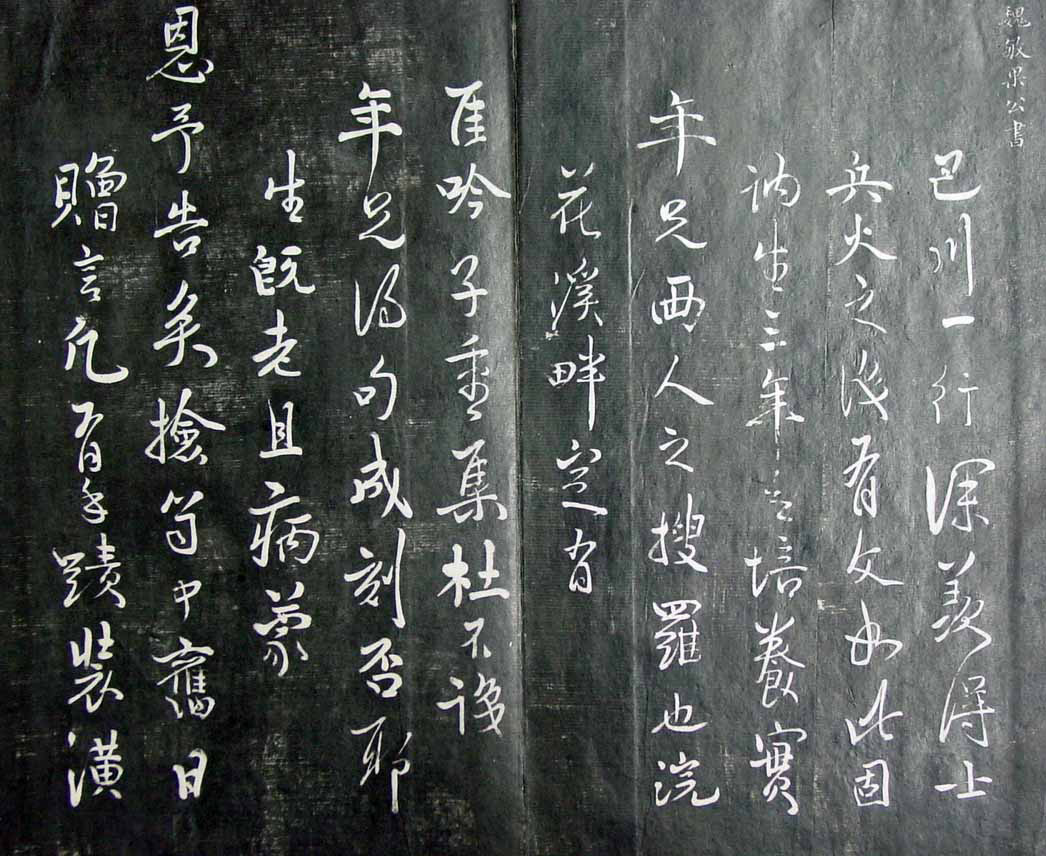 魏敏果公書
巴川一行深羨得士
兵火之後有文如此固
訥生三年之培養實
年兄兩人之搜羅也浣
花溪畔定有
隹吟子重集杜不識
年兄得句成刻否耶
生既老且病蒙
恩予告矣撿笥中舊日
贈言凡有手蹟裝潢